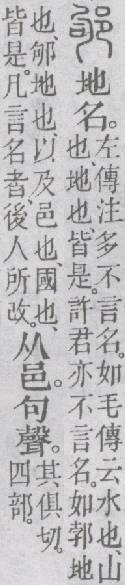 邭地名。左傳注多不言名。如毛傳云水也、山
也、地也、皆是。許君亦不言名。如郣地
也、邭地也、以及邑也、國也、
皆是。凡言名者、後人所改。
从邑。句聲。其俱切。
四部。